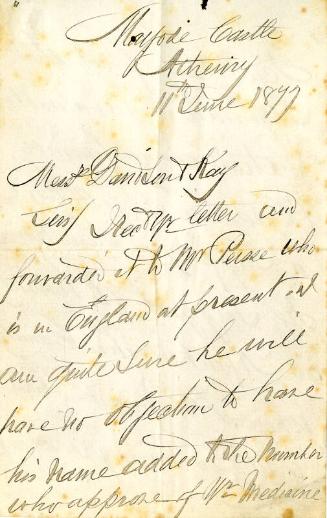 Moyode Castle
Athenry
11th June 1877
Messrs Davison & Kay
Sirs I Recd yr letter and
forwarded it to Mr Persse who
is in England at present - I
am quite Sure he will
have no objection to have
his name added to the Number
who approve of Yr Medicine